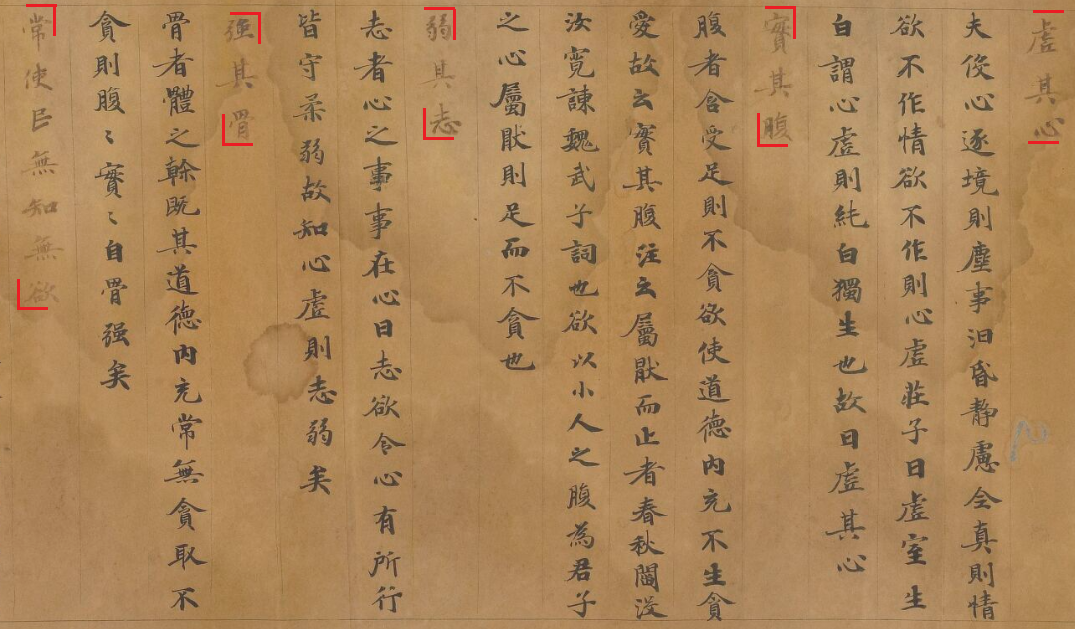 虛其心
夫役心逐境則塵事汩昏靜慮全真則情
欲不作情欲不作則心虛莊子曰虛室生
白謂心虛則純白獨生也故曰虛其心
實其腹
腹者含受足則不貪欲使道德內充不生貪
愛故云實其腹注云屬猒而止者春秋閻沒
汝寬諫魏武子詞也欲以小人之腹為君子
之心屬猒則足而不貪也
弱其志
志者心之事事在心曰志欲令心有所行
皆守柔弱故知心虛則志弱矣
強其骨
骨者體之幹既其道德內充常無貪取不
貪則腹〻實〻自骨强矣
常使民無知無欲